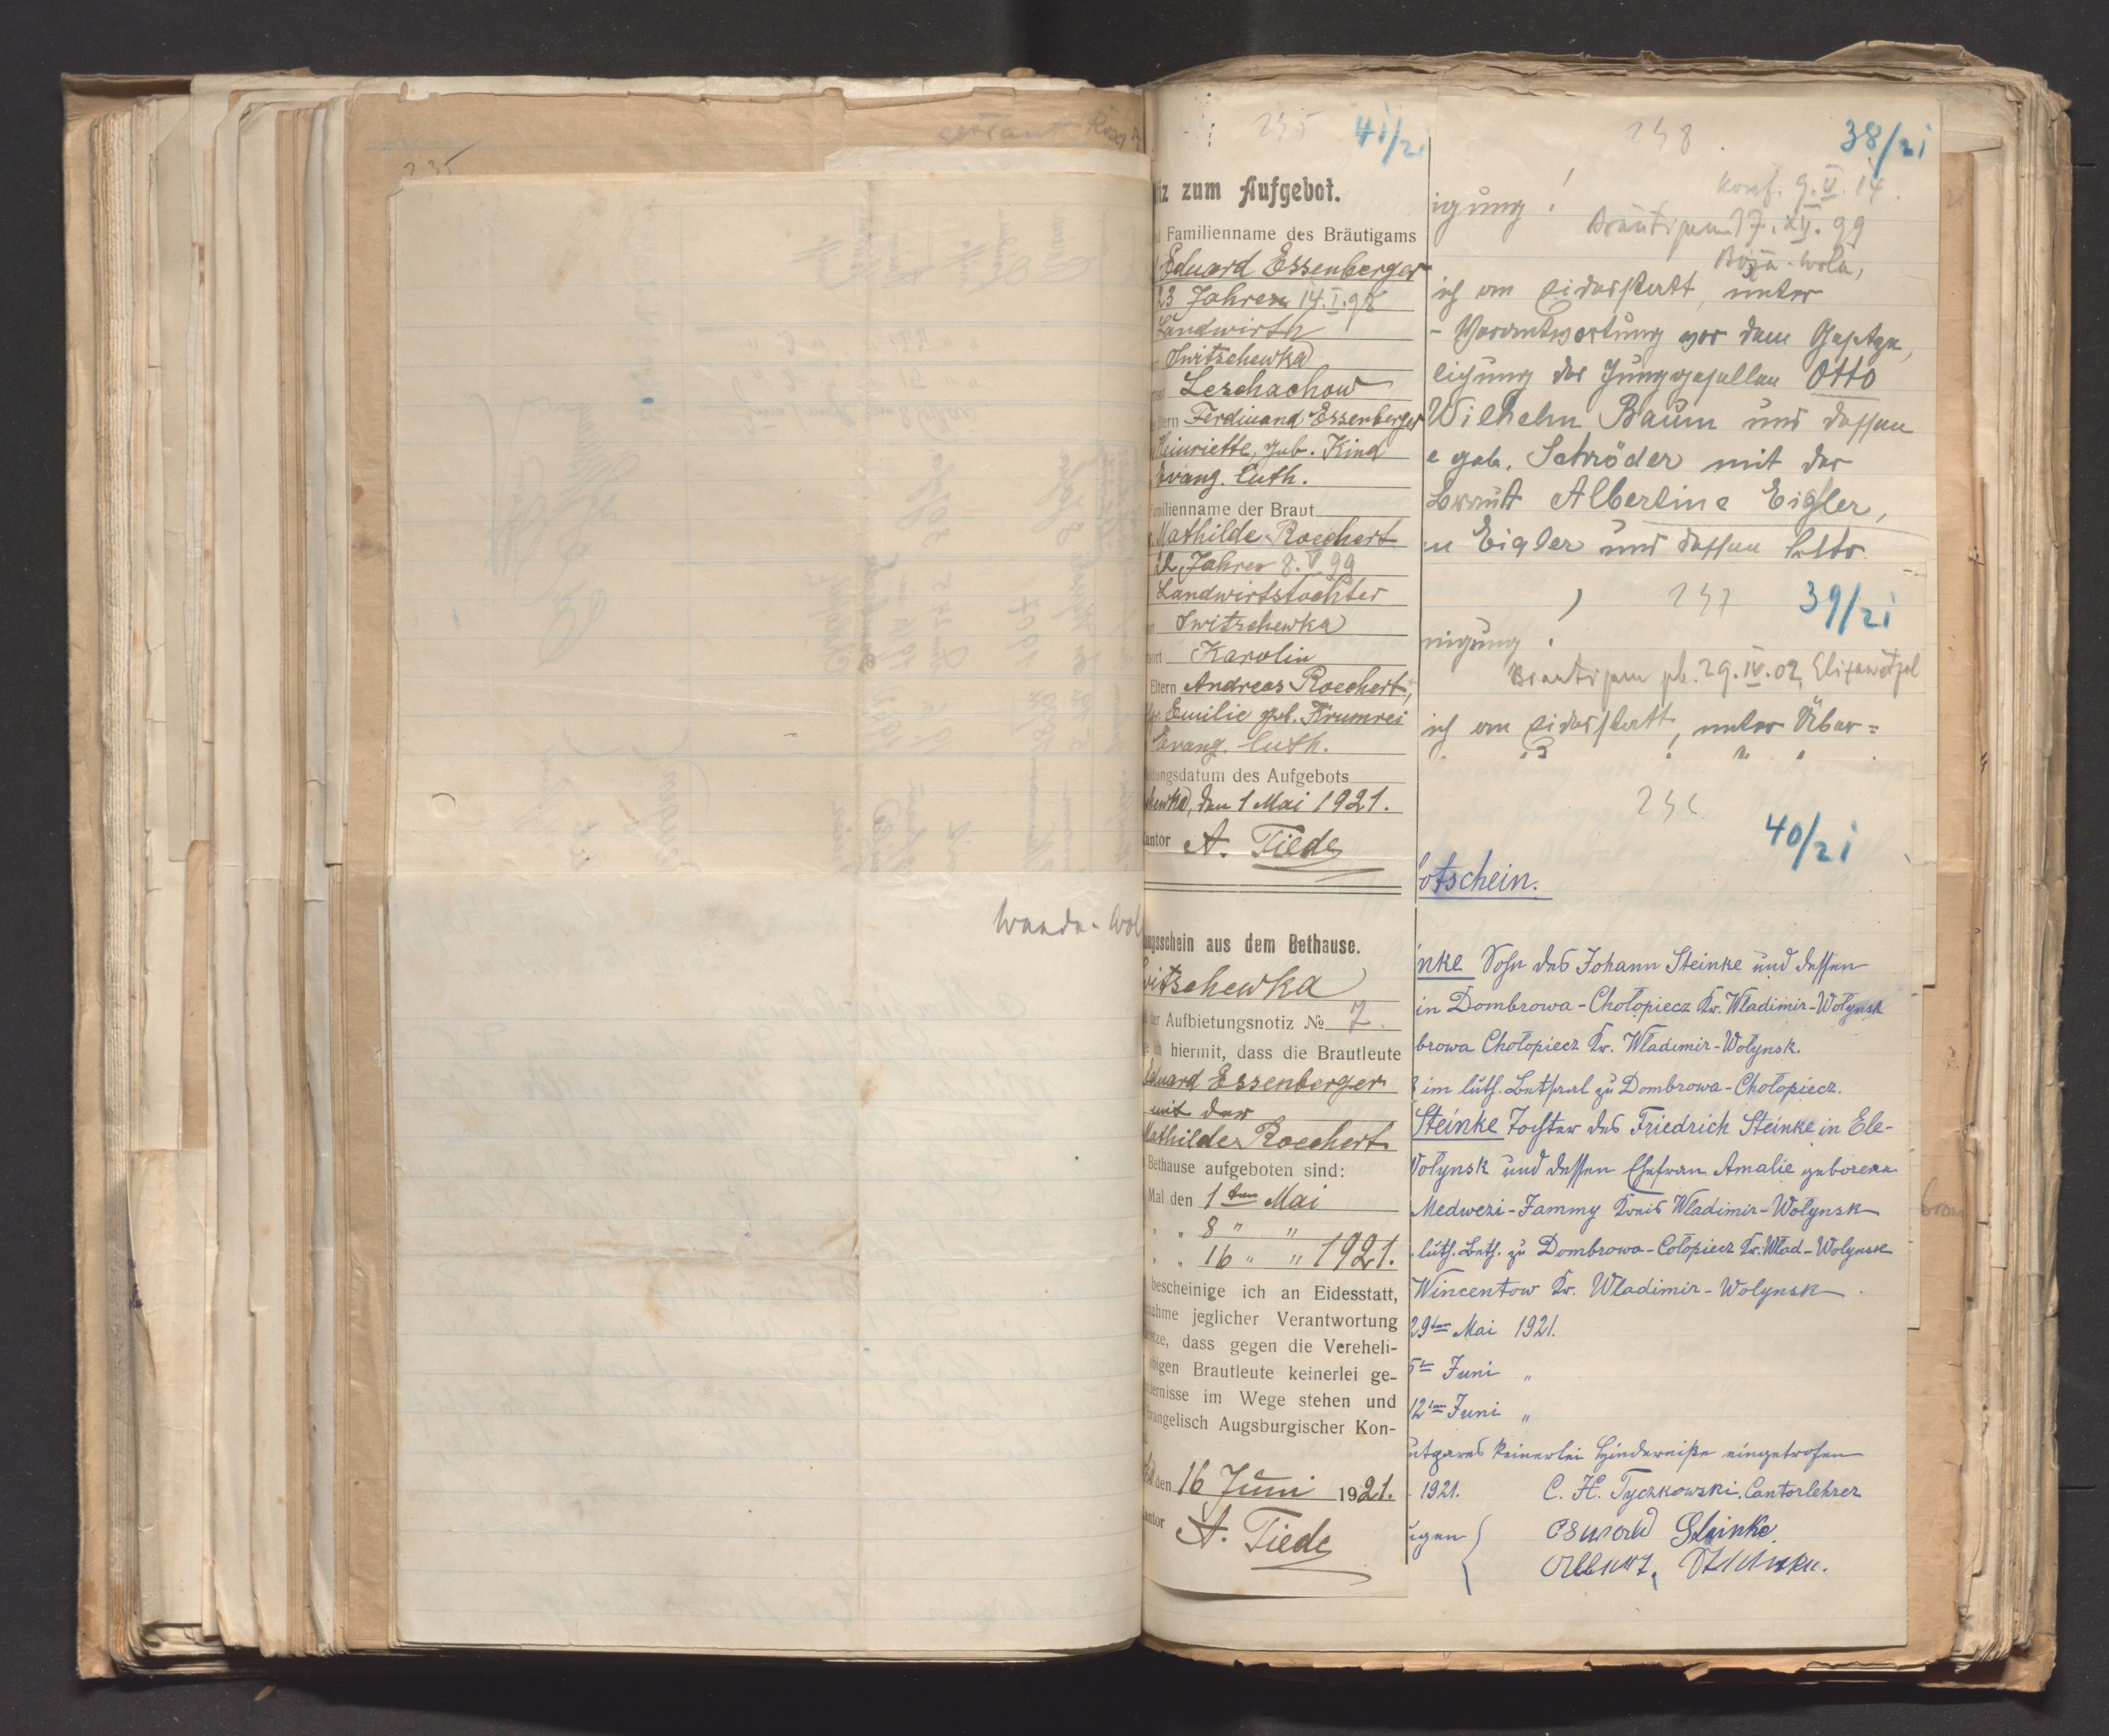 235
Wanda-Wol
235 41/21
iz zum Aufgebot.
Familienname des Bräutigams
Eduard Essenberger
23 Jahren 14.I.98
Landwirth
Switschewka
Leschachow
tern Ferdinand Essenberger
Heinriette, geb. Kind
Evang. Luth.
milienname der Braut
Mathilde Roechert
22 Jahren 8.V.99
Landwirtstochter
Switschewka
sort Karolin
Eltern Andreas Roechert,
Emilie geb. Krumrei
Evang. Luth.
dungsdatum des Aufgebots
hewka, den 1 Mai 1921.
antor A. Tiede
ngsschein aus dem Bethause.
witschewka
der Aufbietungsnotiz № 7.
ich hiermit, dass die Brautleute
Eduard Essenberger
mit der
Mathilde Roechert
Bethause aufgeboten sind:
Mal den 1ten Mai
" " 8 " "
" " 16 " " 1921.
bescheinige ich an Eidesstatt,
nahme jeglicher Verantwortung
etze, dass gegen die Vereheli-
obigen Brautleute keinerlei ge-
dernisse im Wege stehen und
vangelisch Augsburgischer Kon-
den 16 Juni 1921.
antor A. Tiede
238 38/21
Konf. 9.V.14.
igung!
Bräutigam 17.XII.99
Róża-Wola,
ich an Eidesstatt, unter
- Verantwortung vor dem Gesetze,
ligung des Junggesellen Otto
Wilhelm Baum und dessen
e geb. Schröder mit der
Braut Albertine Eigler,
n Eigler und dessen
237 39/21
nigung!
Bräutigam gb. 29.IV.02,
ich an Eidesstatt, unter Über=
236
40/21
otschein.
nke Sohn des Johann Steinke und dessen
in Dombrowa-Chołopiecz Kr. Wladimir-Wołynsk
browa Chołopiecz Kr. Wladimir-Wolynsk.
8 im luth. Betsaal zu Dombrowa-Chołopiecz.
Steinke Tochter des Friedrich Steinke in Ele-
Wołynsk und dessen Ehefrau Amalie geborene
Medwezi-Jammy Kreis Wladimir-Wołynsk
luth. Beth. zu Dombrowa-Cołopiecz Kr. Wład-Wolynsk
Wincentow Kr. Wladimir-Wolynsk
29ten Mai 1921.
5te Juni "
12ten Juni "
keinerlei Hinderniße eingetrofen
1921. C. H. Tyczkowski. Cantorlehrer
ugen { Oswald Steinke